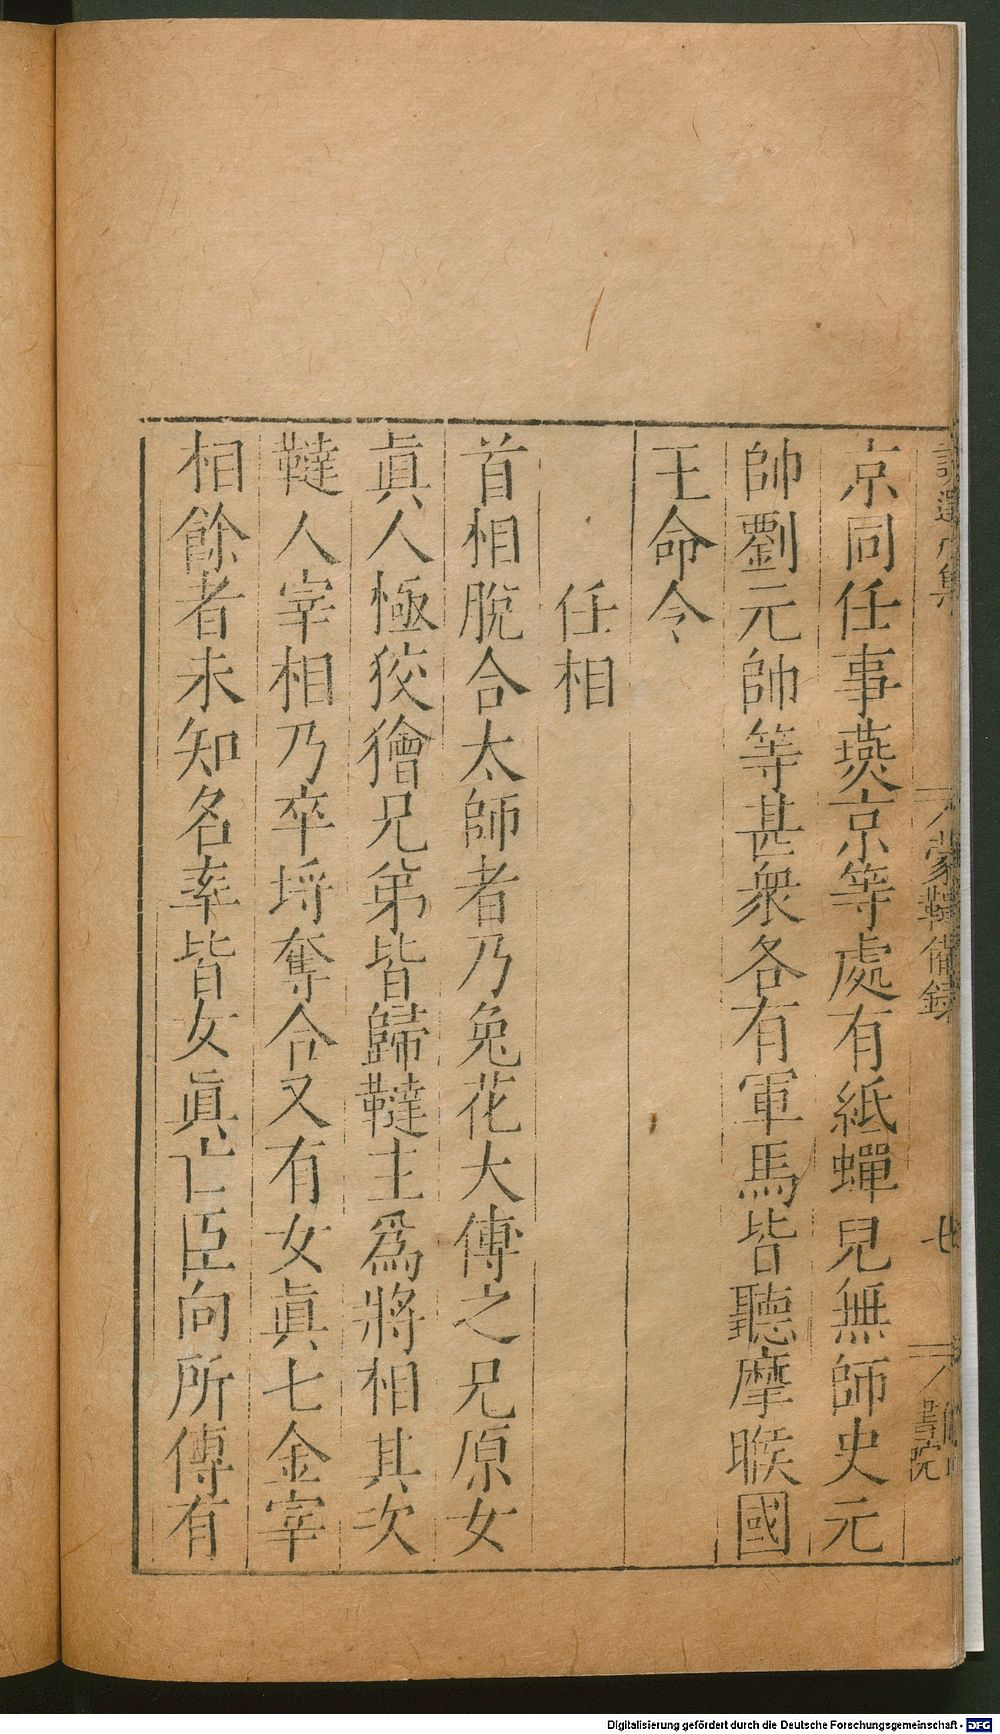 蒙韃備錄
七
書院
京同任事燕京等處有紙蟬兒無師史元
帥劉元帥等甚衆各有軍馬皆聽摩睺國
王命令
任相
首相脫合太師者乃兔花大傅之兄原女
眞人極狡獪兄弟皆歸韃主爲將相其次
韃人宰相乃卒埒奪合又有女眞七金宰
相餘者未知名率皆女眞亡臣向所傳有
Digitalisierung gefördert durch die Deutsche Forschungsgemeinschaft - DFG